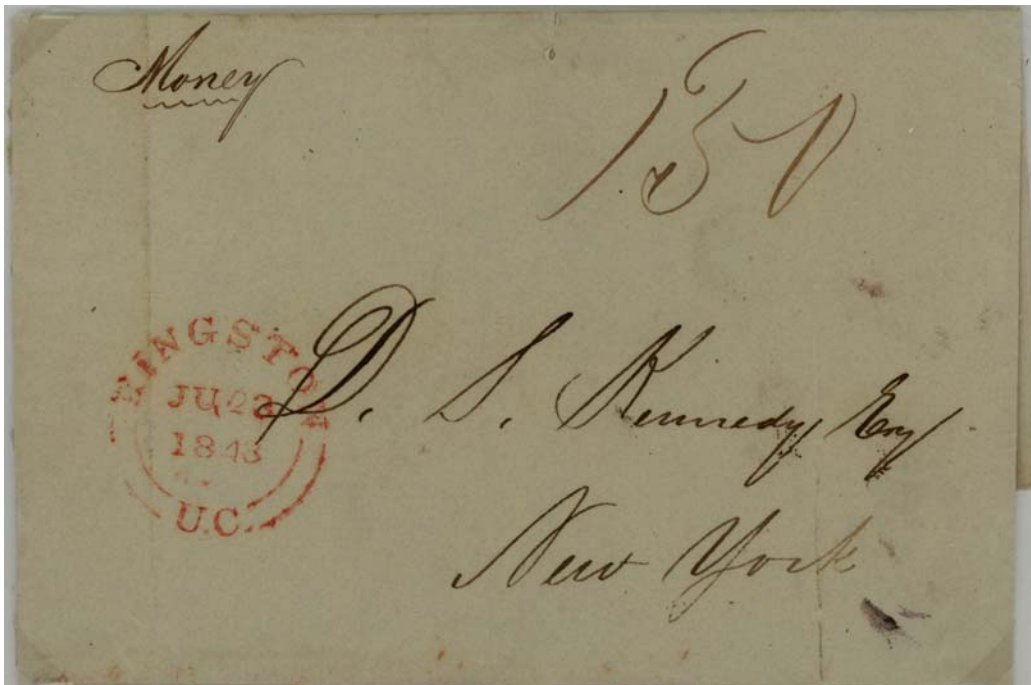 Money
KINGSTON
JU 23
1843
U.C.
D. S. Kennedy Esq
New York